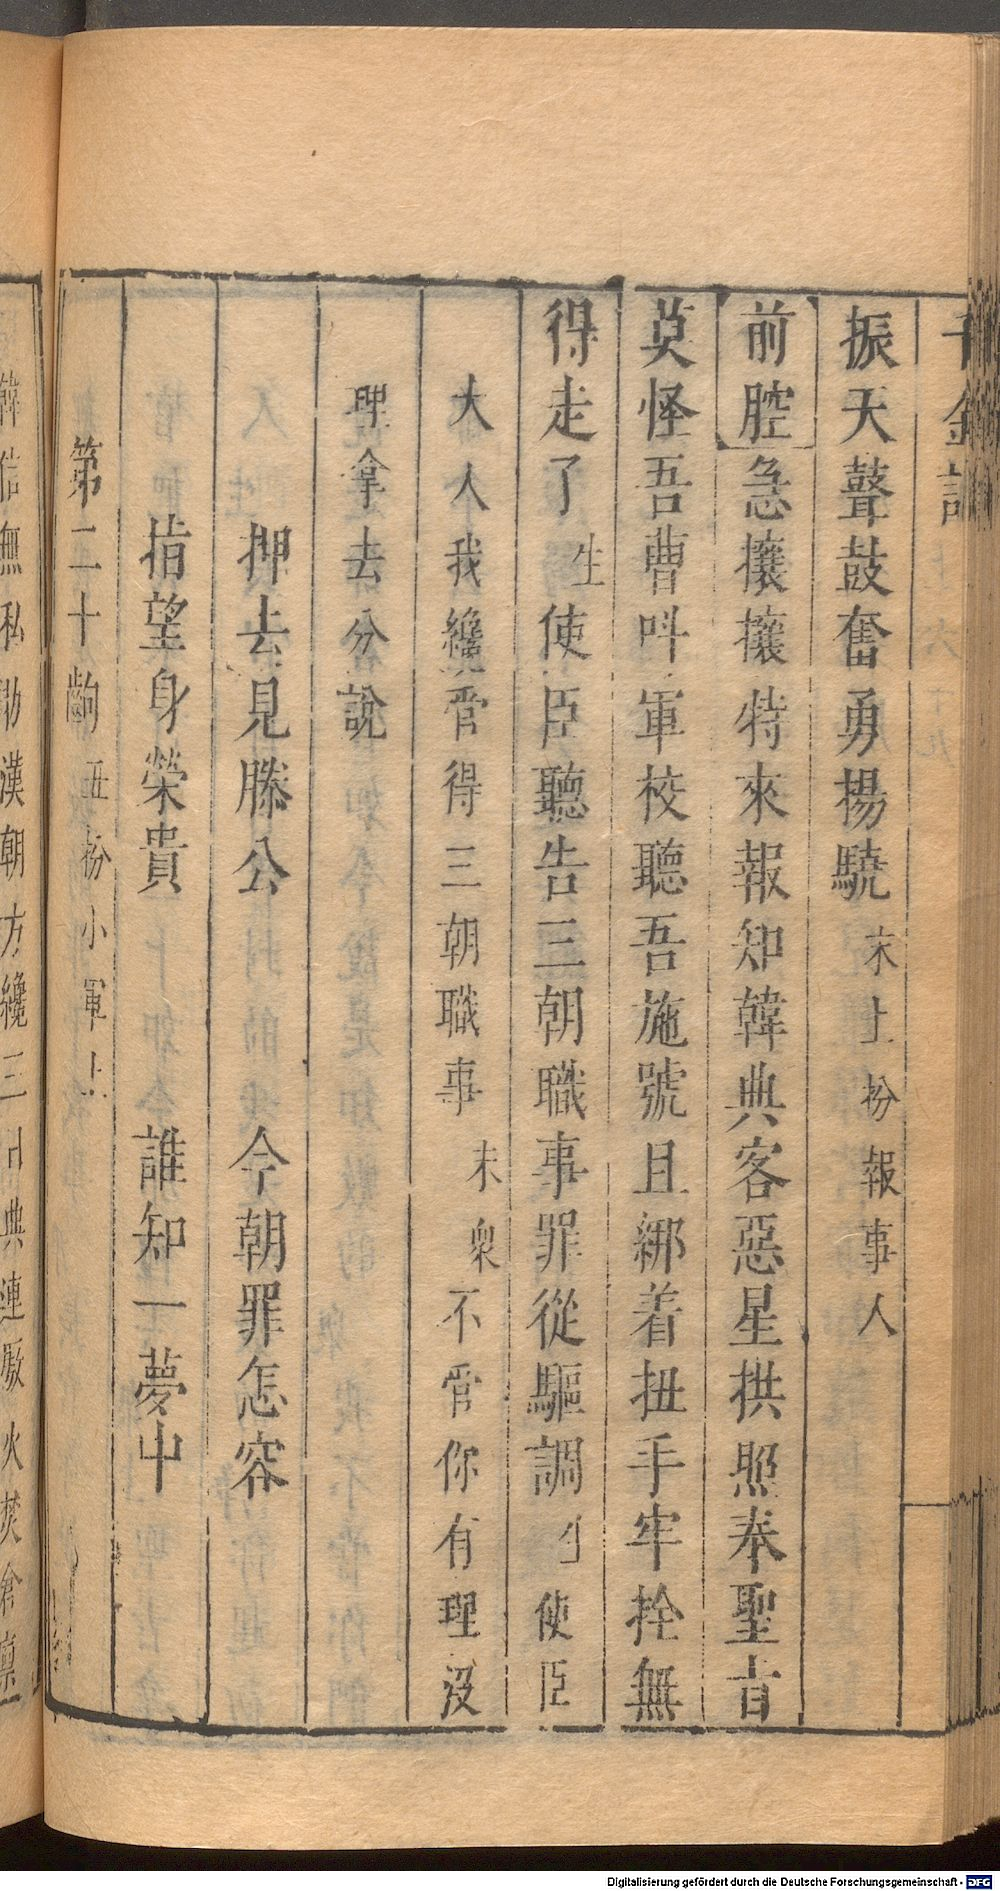 千金記
振天聲鼓奮勇揚驍末上扮報事人
前腔急攘攘特來報知韓典客惡星拱照奉聖旨
莫怪吾曹呌軍校聽吾施號且綁着扭手牢拴無
得走了生使臣聽告三朝職事罪從驅調 使臣
大人我纔管得三朝職事末衆不管你有理沒
理拿去分說
押去見滕公 今朝罪怎容
指望身榮貴 誰知一夢中
第二十齣丑扮小軍上
韓信無私助漢朝方纔三日典連厫火焚倉廩
Digitalisierung gefördert durch die Deutsche Forschungsgemeinschaft - DFG